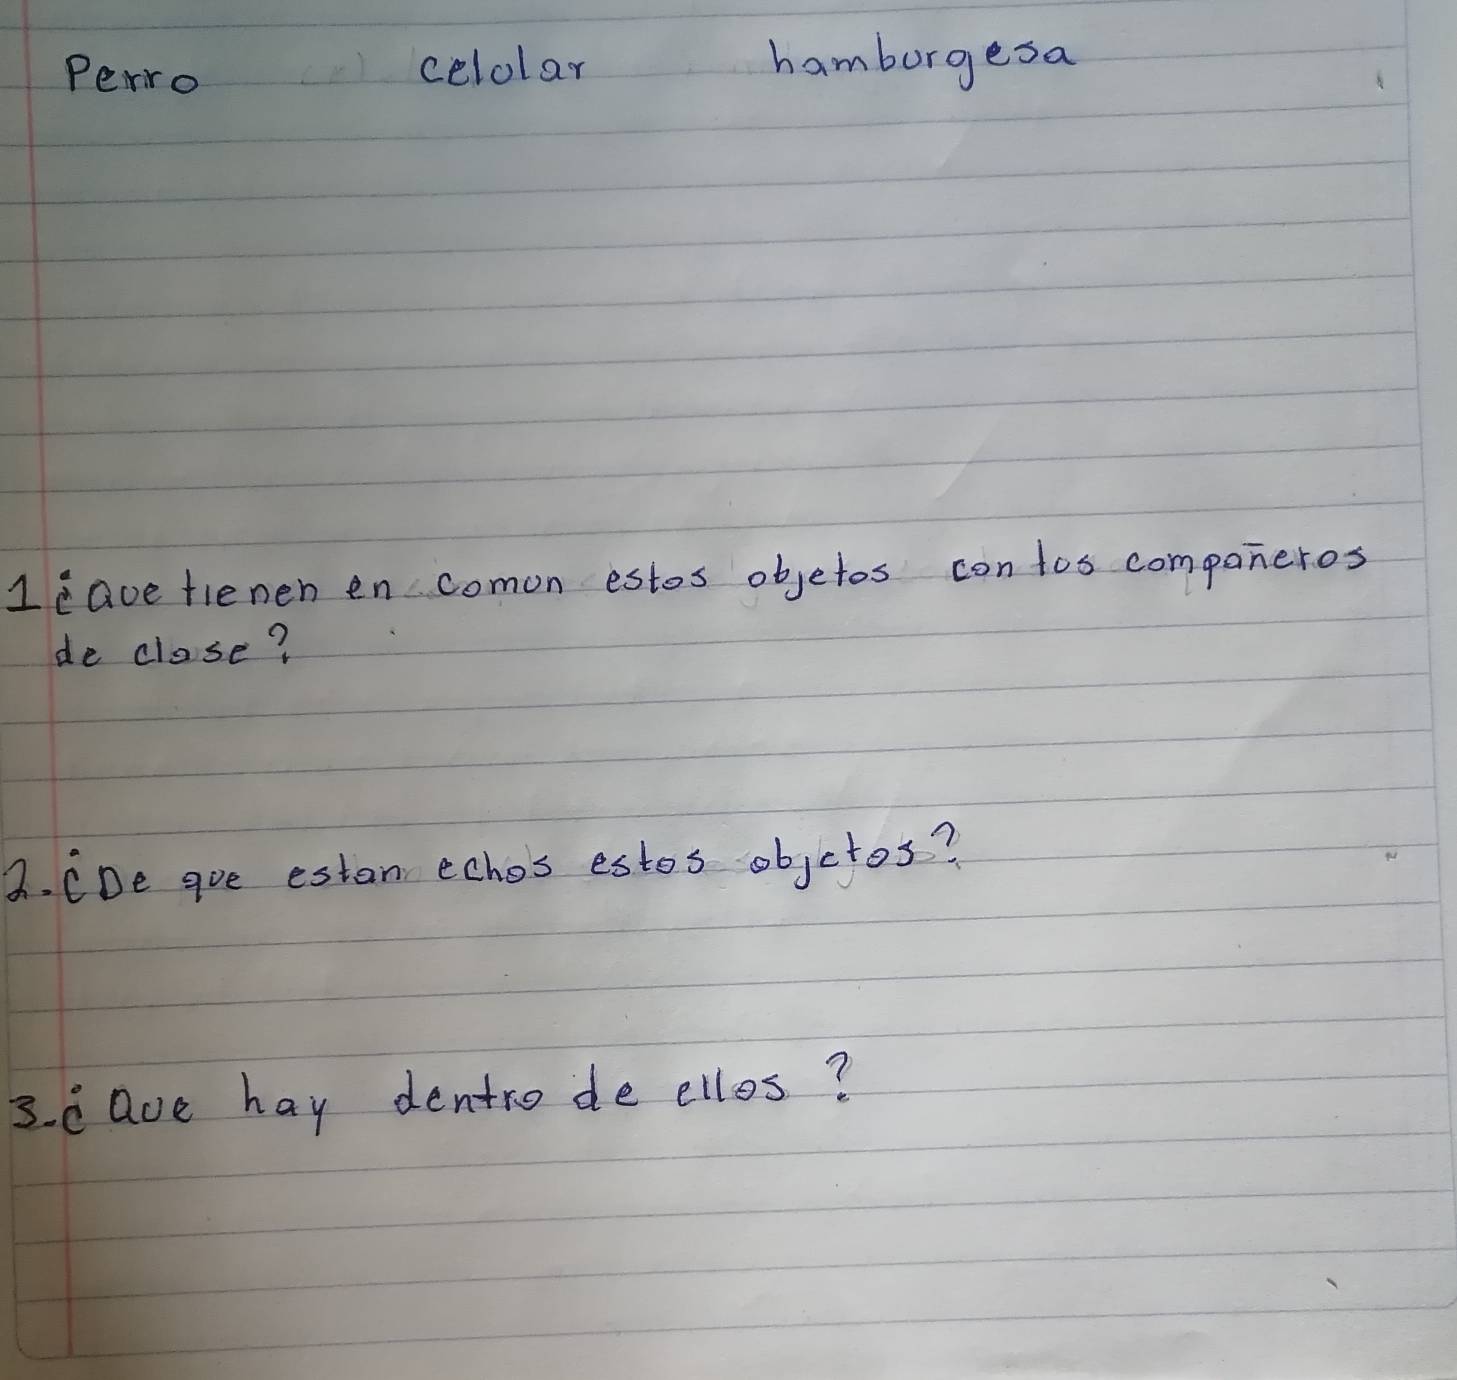 Perro celular hamburgesa
1 ¿Que tienen en comun estos objetos con los compañeros
de clase?
2. ¿De que estan echos estos objetos?
3. ¿Que hay dentro de ellos?